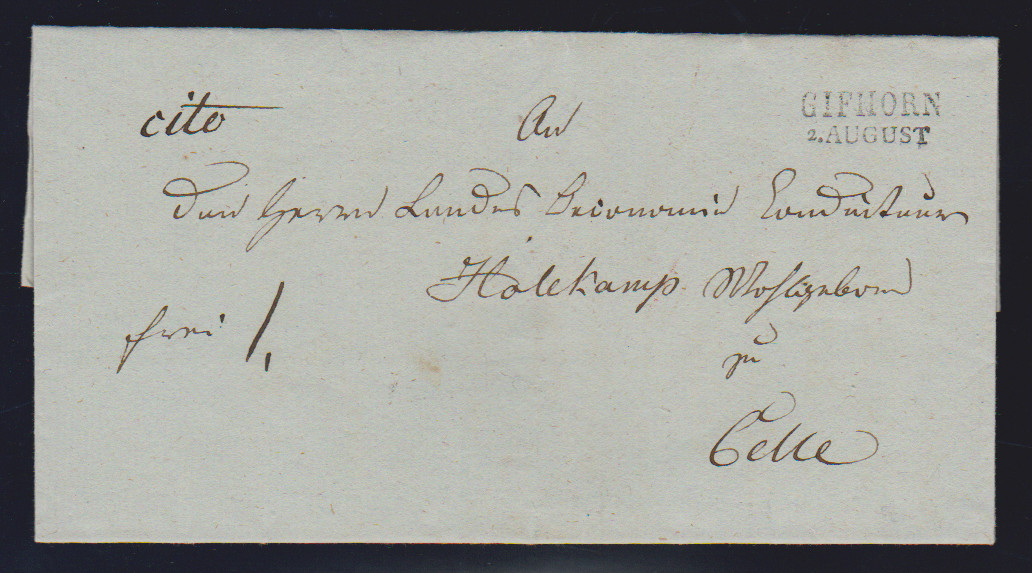 cito
An
GIFHORN
2. AUGUST
den Herrn Landes Oeconomie Conducteur
Holekamp Wohlgeborn
frei 1.
zu
Celle